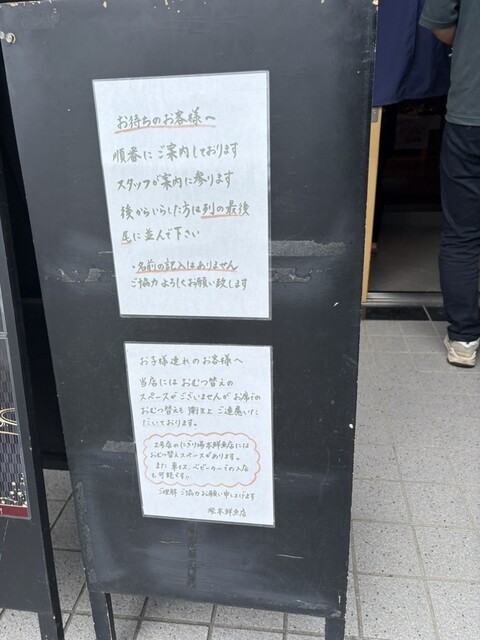 お待ちのお客様へ
順番にご案内しております
スタッフが案内に参ります
後からいらした方は列の最後
尾に並んで下さい
・名前の記入はありません
ご協力よろしくお願い致します
お子様連れのお客様へ
当店にはおむつ替えの
スペースがございませんがお席での
おむつ替えも衛生上ご遠慮いた
だいております。
2号店のにぎり場本鮮魚店には
おむつ替えスペースがあります。
また車イス、ベビーカーでの入店
も可能です!!
ご理解ご協力お願い申し上げます
塚本鮮魚店